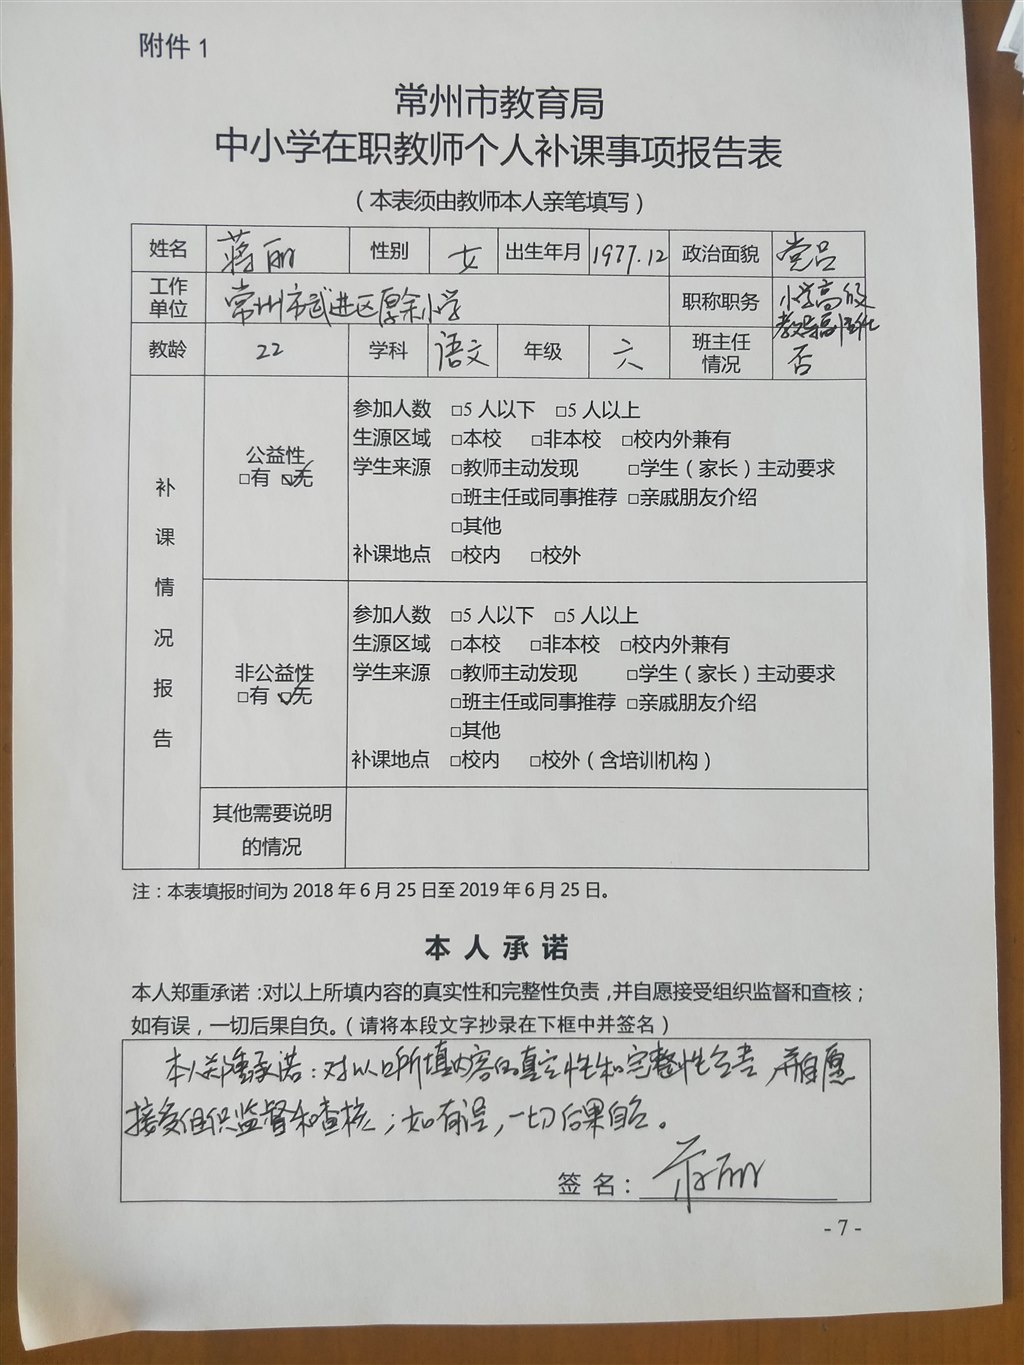 附件 1
常州市教育局
中小学在职教师个人补课事项报告表
（本表须由教师本人亲笔填写）
姓名 蒋丽 性别 女 出生年月 1977.12 政治面貌 党员
工作单位 常州市武进区厚余小学 职称职务 小学高级 教导副主任
教龄 22 学科 语文 年级 六 班主任情况 否
补课情况报告
公益性
□有 ☑无
参加人数 □5 人以下 □5 人以上
生源区域 □本校 □非本校 □校内外兼有
学生来源 □教师主动发现 □学生（家长）主动要求
□班主任或同事推荐 □亲戚朋友介绍
□其他
补课地点 □校内 □校外
非公益性
□有 ☑无
参加人数 □5 人以下 □5 人以上
生源区域 □本校 □非本校 □校内外兼有
学生来源 □教师主动发现 □学生（家长）主动要求
□班主任或同事推荐 □亲戚朋友介绍
□其他
补课地点 □校内 □校外（含培训机构）
其他需要说明
的情况
注：本表填报时间为 2018 年 6 月 25 日至 2019 年 6 月 25 日。
本 人 承 诺
本人郑重承诺：对以上所填内容的真实性和完整性负责，并自愿接受组织监督和查核；
如有误，一切后果自负。（请将本段文字抄录在下框中并签名）
本人郑重承诺：对以上所填内容的真实性和完整性负责，并自愿
接受组织监督和查核；如有误，一切后果自负。
签 名：蒋丽
- 7 -